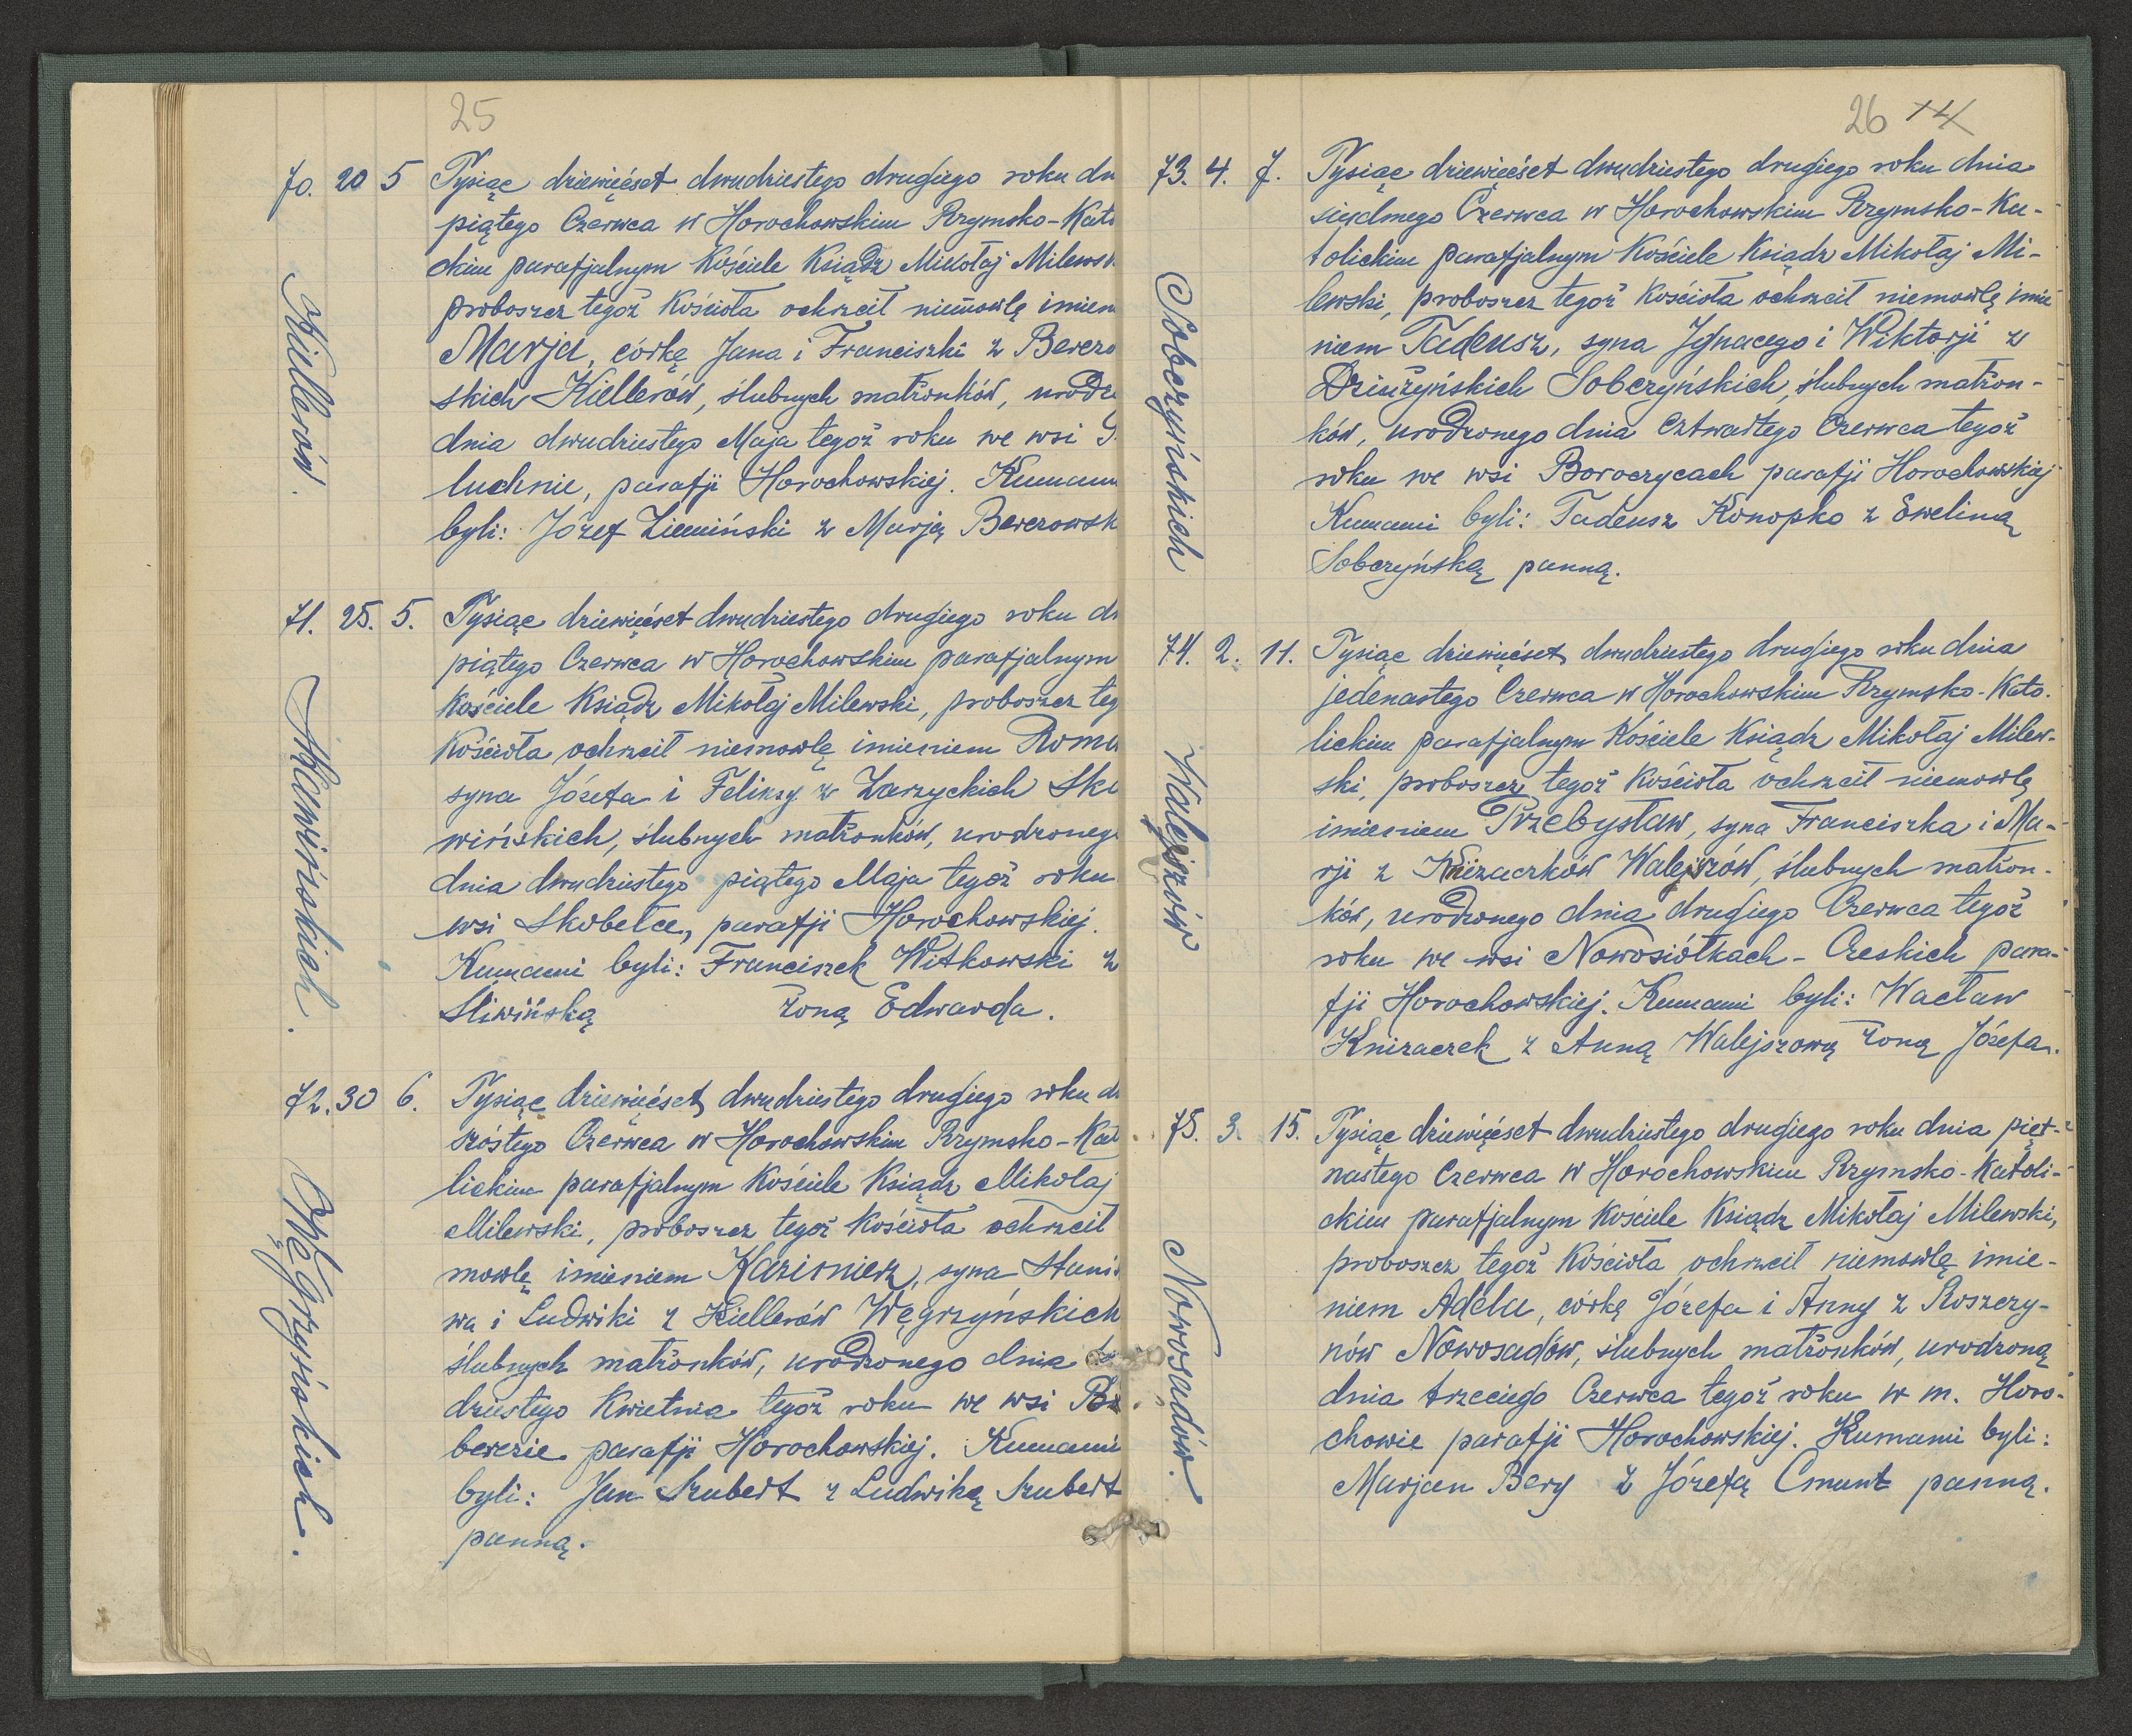 25
70. 20 5 Tysiąc dziewięćset dwudziestego drugiego roku dn
piątego Czerwca w Horochowskim Rzymsko-Kato
ckim parafjalnym Kościele Ksiądz Mikołaj Milews
proboszcz tegoż Kościoła ochrzcił niemowlę imien
Marja, córkę Jana i Franciszki z Berezo
skich Kiellerów, ślubnych małżonków, urodz
dnia dwudziestego Maja tegoż roku we wsi
luchnie, parafji Horochowskiej. Kumam
byli: Józef Ziemiński z Marją Berezowsk
Kiellerów.
71. 25. 5. Tysiąc dziewięćset dwudziestego drugiego roku dn
piątego Czerwca w Horochowskim parafjalnym
Kościele Ksiądz Mikołaj Milewski, proboszcz teg
Kościoła ochrzcił niemowlę imieniem Roma
syna Józefa i Feliksy z Zarzyckich Ska
wińskich, ślubnych małżonków, urodzoneg
dnia dwudziestego piątego Maja tegoż roku
wsi Skobełce, parafji Horochowskiej.
Kumami byli: Franciszek Witkowski z
Śliwińską żoną Edwarda.
Skawińskich.
72. 30 6. Tysiąc dziewięćset dwudziestego drugiego roku dn
szóstego Czerwca w Horochowskim Rzymsko-Kato
lickim parafjalnym Kościele Ksiądz Mikołaj
Milewski, proboszcz tegoż Kościoła ochrzcił
mowlę imieniem Kazimierz, syna Stanis
wa i Ludwiki z Kiellerów Węgrzyńskich
ślubnych małżonków, urodzonego dnia
dziestego Kwietnia tegoż roku we wsi
berezie parafji Horochowskiej. Kumami
byli: Jan Szubert z Ludwiką Szubert
panną.
Węgrzyńskich.
26 14
73. 4. 7. Tysiąc dziewięćset dwudziestego drugiego roku dnia
siudmego Czerwca w Horochowskim Rzymsko-Ka-
tolickim parafjalnym Kościele Ksiądz Mikołaj Mi-
lewski, proboszcz tegoż Kościoła ochrzcił niemowlę imie
niem Tadeusz, syna Ignacego i Wiktorji z
Dziużyńskich Sobczyńskich, ślubnych małżon-
ków, urodzonego dnia Cztwartego Czerwca tegoż
roku we wsi Boroczycach parafji Horochowskiej
Kumami byli: Tadeusz Konopko z Eweliną
Sobczyńską panną.
Sobczyńskich
74. 2. 11. Tysiąc dziewięćset dwudziestego drugiego roku dnia
jedenastego Czerwca w Horochowskim Rzymsko-Kato-
lickim parafjalnym Kościele Ksiądz Mikołaj Milew-
ski, proboszcz tegoż Kościoła ochrzcił niemowlę
imieniem Przebysław, syna Franciszka i Ma-
rji z Knizaczków Walejszów, ślubnych małżon-
ków, urodzonego dnia drugiego Czerwca tegoż
roku we wsi Nowosiółkach-Czeskich para-
fji Horochowskiej. Kumami byli: Wacław
Knizaczek z Anną Walejszową żoną Józefa.
Walejszów
75. 3. 15. Tysiąc dziewięćset dwudziestego drugiego roku dnia pięt-
nastego Czerwca w Horochowskim Rzymsko-Katoli-
ckim parafjalnym Kościele Ksiądz Mikołaj Milewski,
proboszcz tegoż Kościoła ochrzcił niemowlę imie-
niem Adela, córkę Józefa i Anny z Roszczy-
nów Nowosadów, ślubnych małżonków, urodzoną
dnia trzeciego Czerwca tegoż roku w m. Horo-
chowie parafji Horochowskiej. Kumami byli:
Marjan Bery z Józefą Cmunt panną.
Nowosadów.